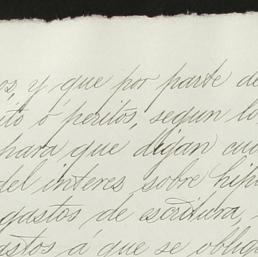 os, y que por parte de
ito ó peritos, segun lo
para que dijan cua
del interes sobre hip
gastos de escritura,
astos á que se oblig